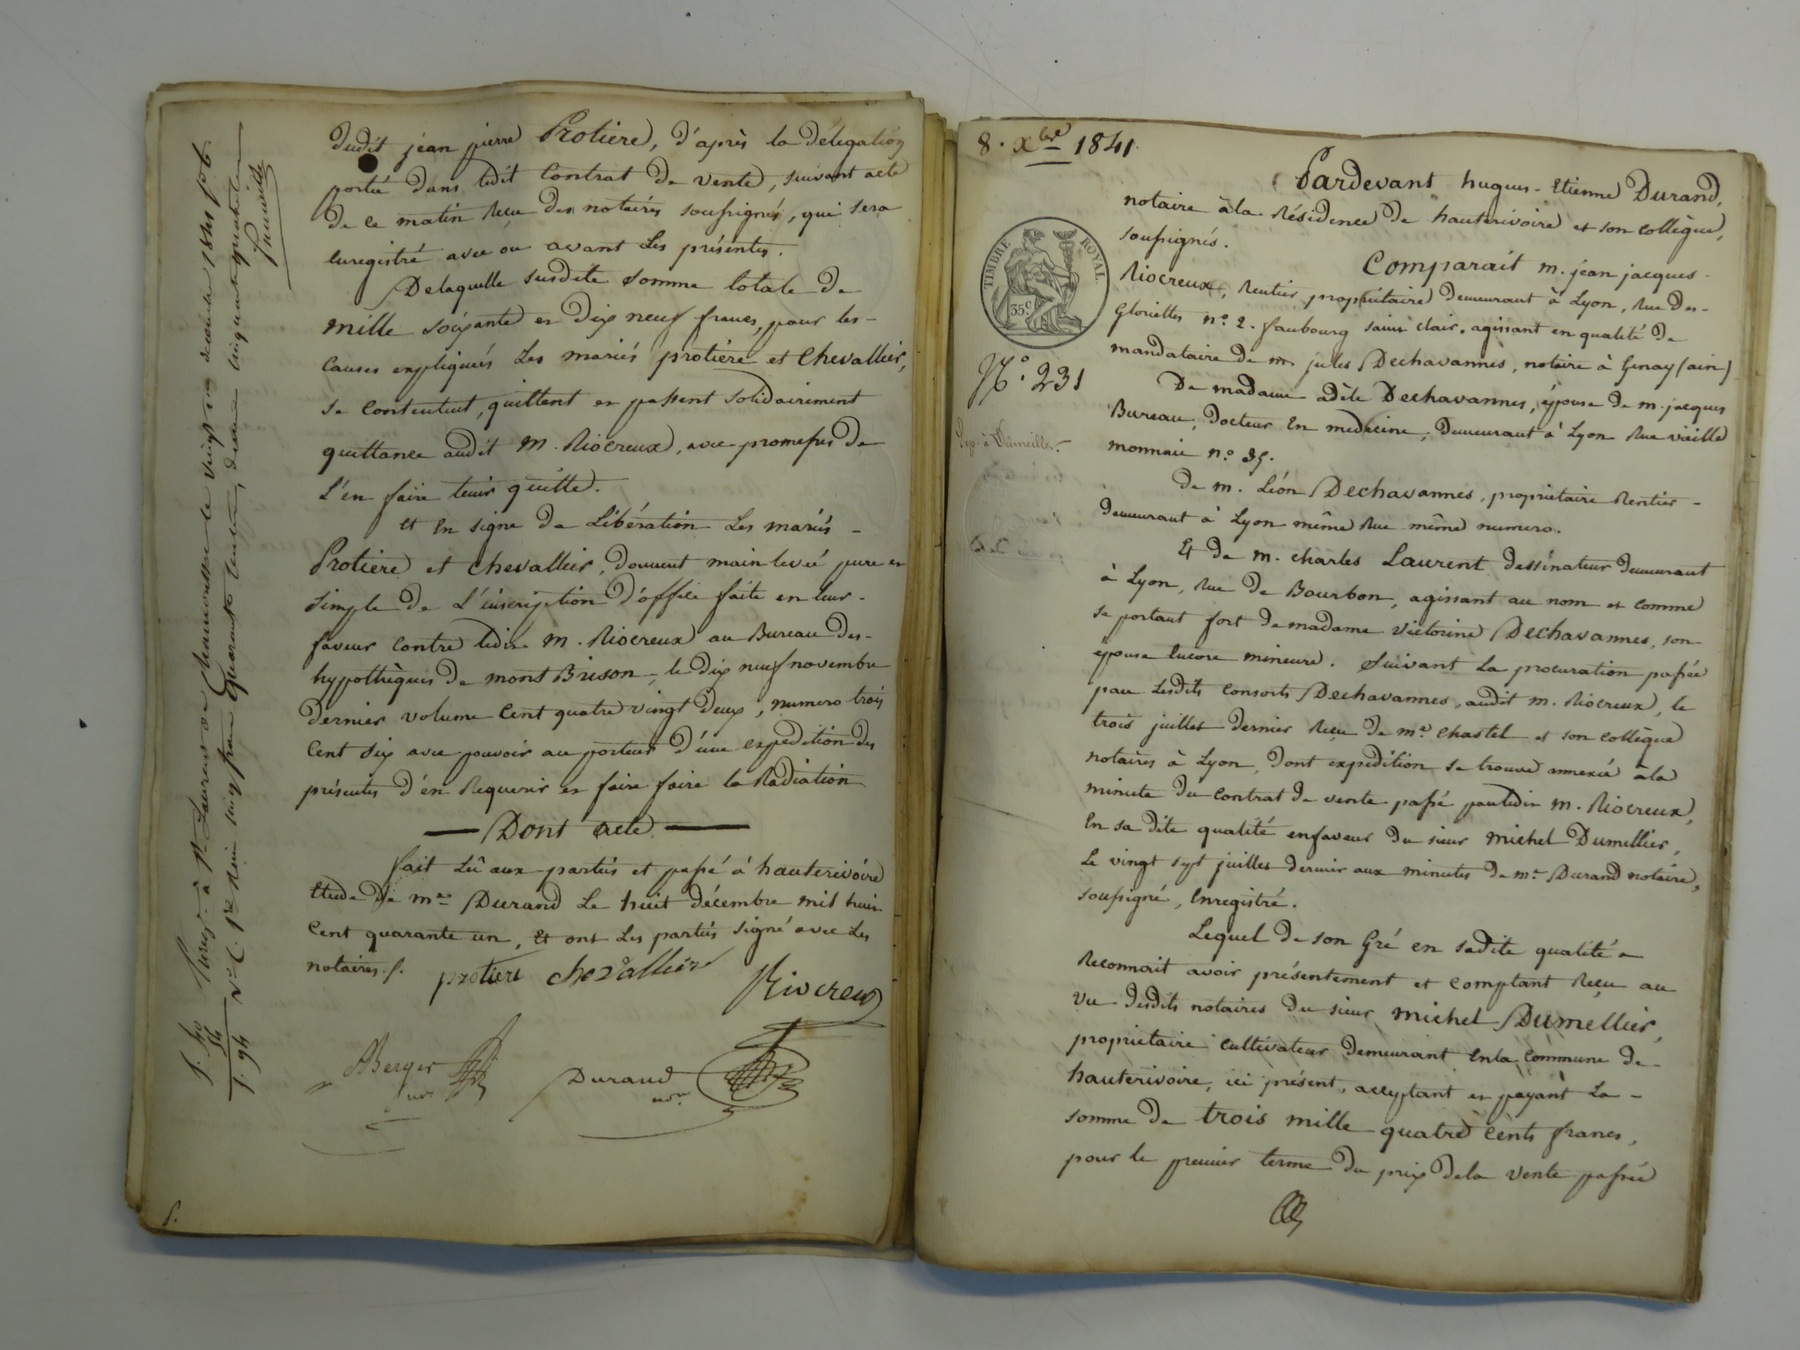 dudit jean pierre Protière, d'après la délégation
portée dans ledit Contrat de vente, suivant acte
de ce matin Reçu des notaires soussignés, qui sera
Enregistré avec ou avant Les présentes.
De laquelle susdite somme totale de
mille soixante et dix neuf francs, pour les
causes expliquées Les mariés protière et Chevallier,
se contentent, quittent et passent solidairement
quittance audit M. Riocreux, avec promesses de
l'en faire tenir quitte.
Et En signe de Libération Les mariés
Protière et Chevallier, donnent main levée pure et
simple de L'inscription d'office faite en leur
faveur contre ledit M. Riocreux au Bureau des
hypothèques de mont Brison, le dix neuf novembre
dernier volume Cent quatre vingt deux, numero trois
Cent six avec pouvoir au porteur d'une expédition des
présentes d'en Requerir et faire faire la Radiation
Dont acte.
fait Lû aux parties et passé à hauterivoire
Etude de me Durand Le huit décembre mil huit
Cent quarante un, Et ont Les parties signé avec Les
notaires.
protiere chevallier
Riocreux
Berger
Durand
nore
8. Xbre 1841.
Pardevant hugues-Etienne Durand,
notaire à la Résidence de hauterivoire et son collègue,
soussignés.
TIMBRE ROYAL
35 c
Comparait m. jean jacques
Riocreux, Rentier propriétaire demeurant à Lyon, Rue des
Gloriettes no. 2. faubourg saint clair, agissant en qualité de
mandataire de m jules Dechavannes, notaire à Genay (ain)
No. 231
De madame adèle Dechavannes, épouse de m. jacques
Bureau, Docteur En medecine, Demeurant à Lyon Rue vieille
monnaie no. 35.
De m. Léon Dechavannes, propriétaire Rentier
demeurant à Lyon même Rue même numero.
Et de m. charles Laurent dessinateur demeurant
à Lyon, Rue de Bourbon, agissant au nom et comme
se portant fort de madame Victorine Dechavannes, son
épouse Encore mineure. Suivant La procuration passée
par Lesdits Consorts Dechavannes, audit m. Riocreux, le
trois juillet dernier Reçu de me. Chastel et son Collègue
notaires à Lyon, dont expédition se trouve annexée à la
minute du contrat de vente passé par ledit m. Riocreux,
En sa dite qualité en faveur du sieur michel Dumellier,
Le vingt sept juillet dernier aux minutes de me. Durand notaire,
soussigné, Enregistré.
Lequel de son Gré en sadite qualité
Reconnait avoir présentement et comptant Reçu au
vu desdits notaires du sieur michel Dumellier,
propriétaire cultivateur demeurant En la Commune de
hauterivoire, ici présent, acceptant et payant La
somme de trois mille quatre cents francs,
pour le premier terme du prix de la vente passée